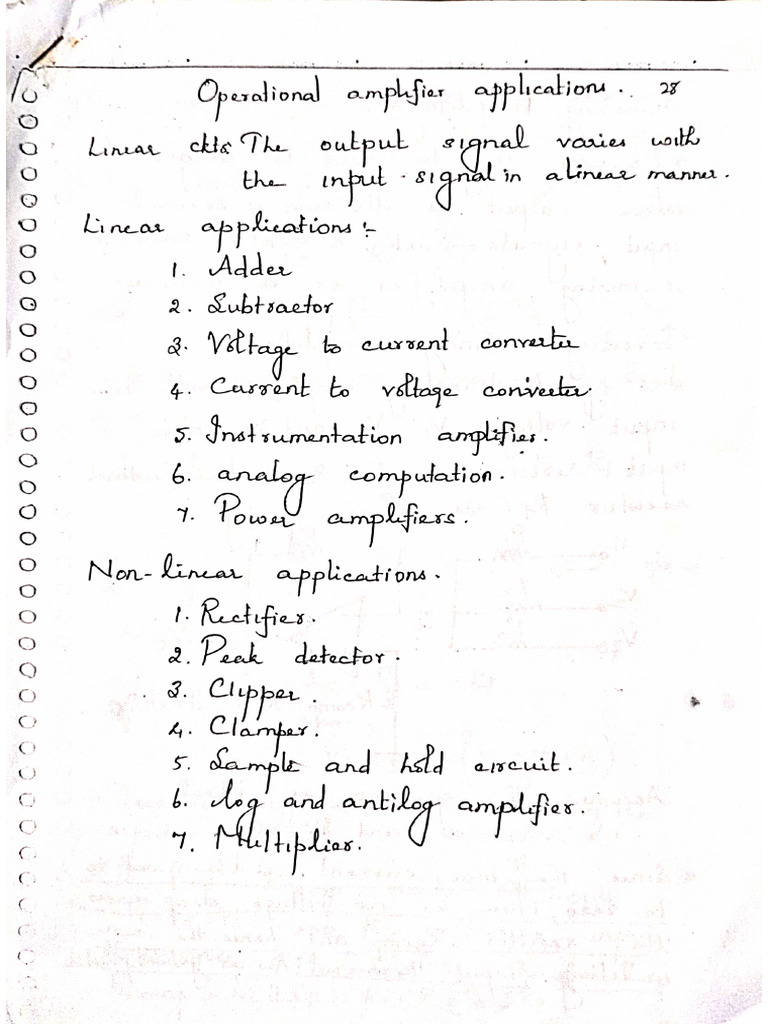 Operational amplifier applications. 28
Linear ckts The output signal varies with
the input signal in a linear manner.
Linear applications :-
1. Adder
2. Subtractor
3. Voltage to current converter
4. Current to voltage converter.
5. Instrumentation amplifier.
6. analog computation.
7. Power amplifiers.
Non-linear applications.
1. Rectifier.
2. Peak detector.
3. Clipper.
4. Clamper.
5. Sample and hold circuit.
6. log and antilog amplifier.
7. Multiplier.